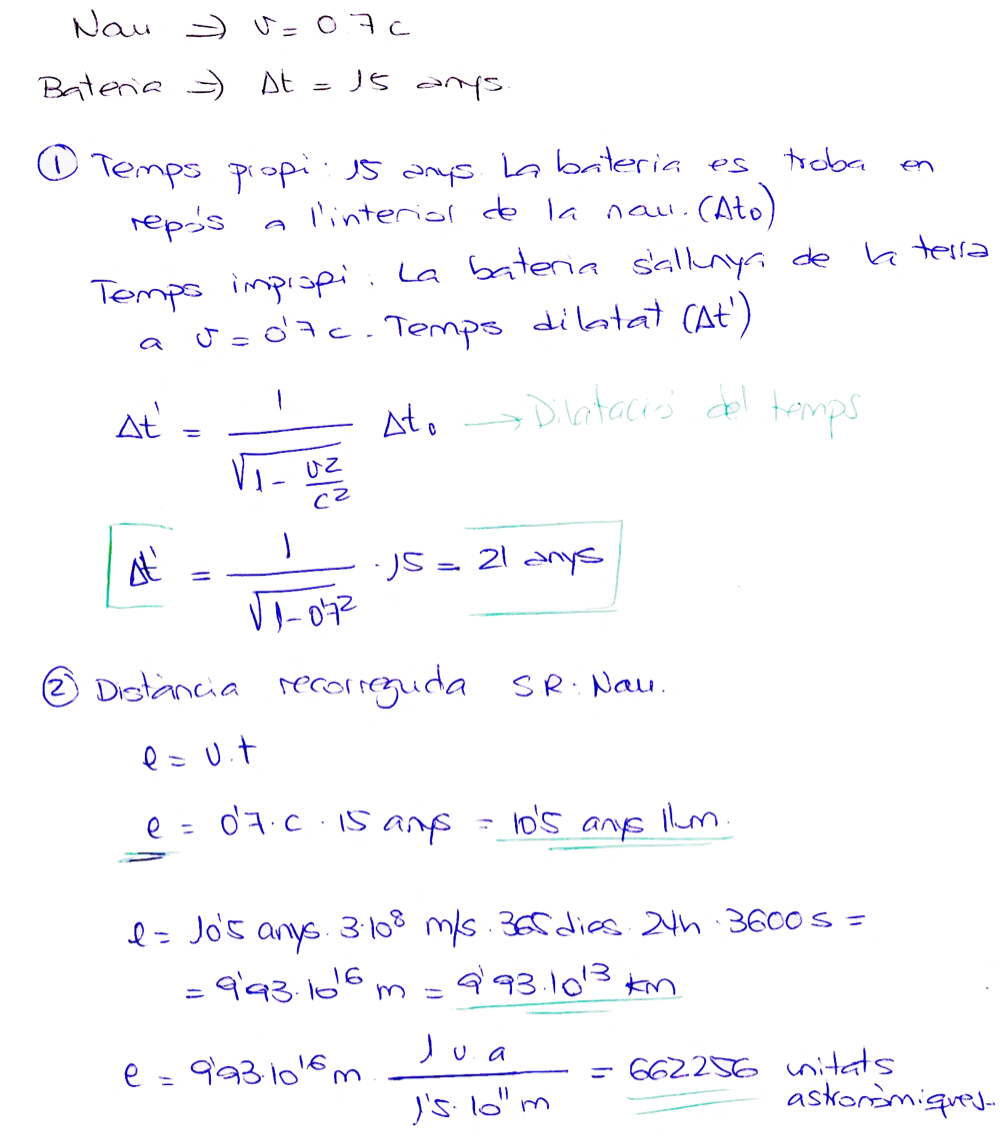 Nau ⇒ v = 0'7c
Bateria ⇒ Δt = 15 anys.
① Temps propi: 15 anys. La bateria es troba en
repòs a l'interior de la nau. (Δt₀)
Temps impropi: La bateria s'allunya de la terra
a v = 0'7c. Temps dilatat (Δt')
Δt' = 1 / √(1 - v²/c²) Δt₀ → Dilatació del temps
Δt' = 1 / √(1 - 0'7²) · 15 = 21 anys
② Distància recorreguda SR: Nau.
e = v·t
e = 0'7·c·15 anys = 10'5 anys llum.
e = 10'5 anys · 3·10⁸ m/s · 365 dies · 24h · 3600 s =
= 9'93·10¹⁶ m = 9'93·10¹³ km
e = 9'93·10¹⁶ m · 1 u a / 1'5·10¹¹ m = 662256 unitats
astronòmiques.